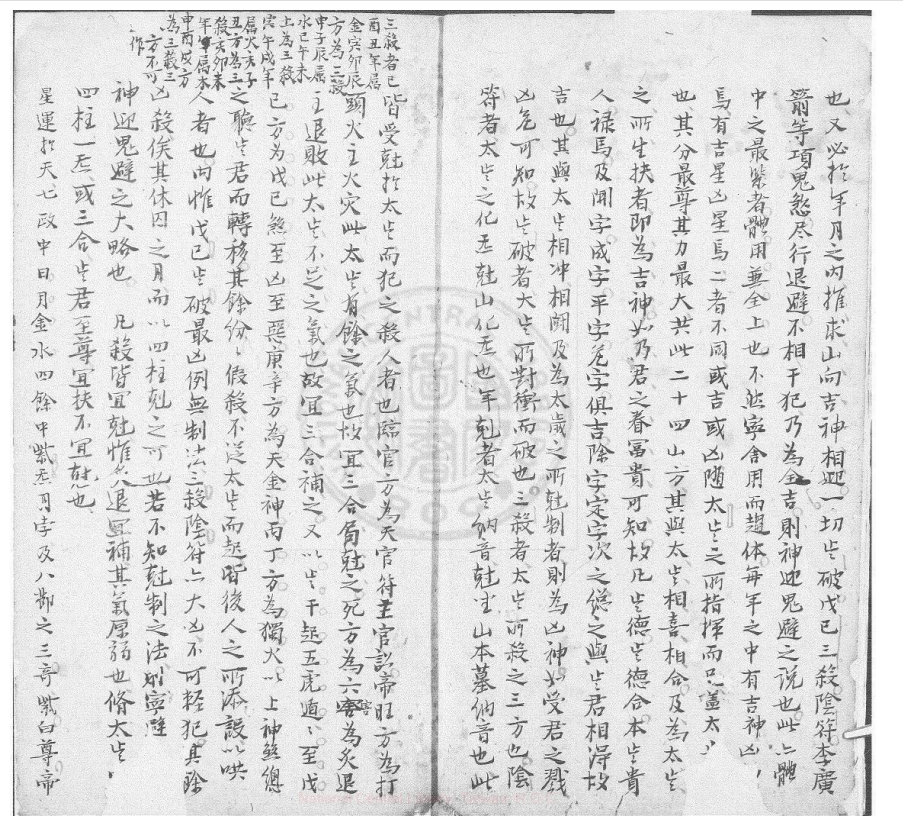 也又必於年月之內推求山向吉神相迎一切岁破戊已三殺陰符李廣
箭等項鬼煞尽行退避不相干犯乃為全吉則神迎鬼避之说也此六體
中之最緊者體用兼全上也不然寧舍用而趨体每年之中有吉神凶
馬有吉星凶星馬二者不同或吉或凶随太岁之所指揮而已盖太岁
也其分最尊其力最大共此二十四山方其與太岁相喜相合及為太岁
之所生扶者即為吉神如乃君之眷冨貴可知故凡岁德岁德合本岁貴
人禄馬及開字成字平字危字俱吉除字定字次之總之與岁君相得故
吉也其與太岁相冲相閗及為太歳之所尅制者則為凶神如受君之戮
凶危可知故岁破者大岁所對衝而破也三殺者太岁所殺之三方也陰
符者太岁之化炁尅山化炁也年尅者太岁納音尅坐山本墓納音也此
三殺者巳
酉丑年属
金寅卯辰
方為三殺
申子辰属
水巳午未
上為三殺
寅午戌年
属火亥子
丑方為三
殺亥卯未
年属木
申酉戌方
為三殺三
方不可
作
皆受尅於太岁而犯之殺人者也臨官方為天官符主官訟帝旺方為打
頭火主火灾此太岁有餘之氣也故宜三合局尅之死方為六害為炙退
主退敗此太岁不足之氣也故宜三合補之又以岁干起五虎遁遁至戊
已方為戊已煞至凶至惡庚辛方為天金神丙丁方為獨火以上神煞總
之聽岁君而轉移其餘份份假殺不送太岁而起皆後人之所添設以哄
人者也内惟戊已岁破最凶例無制法三殺陰符六大凶不可軽犯其餘
凶殺俟其休囚之月而以四柱尅之可也若不知尅制之法則寧避
神迎鬼避之大略也 凡殺皆宜尅惟久退宜補其氣原弱也脩太岁
四柱一炁或三合岁君至尊宜扶不宜尅也
星運於天七政中日月金水四餘中紫炁月孛及八節之三奇紫白尊帝